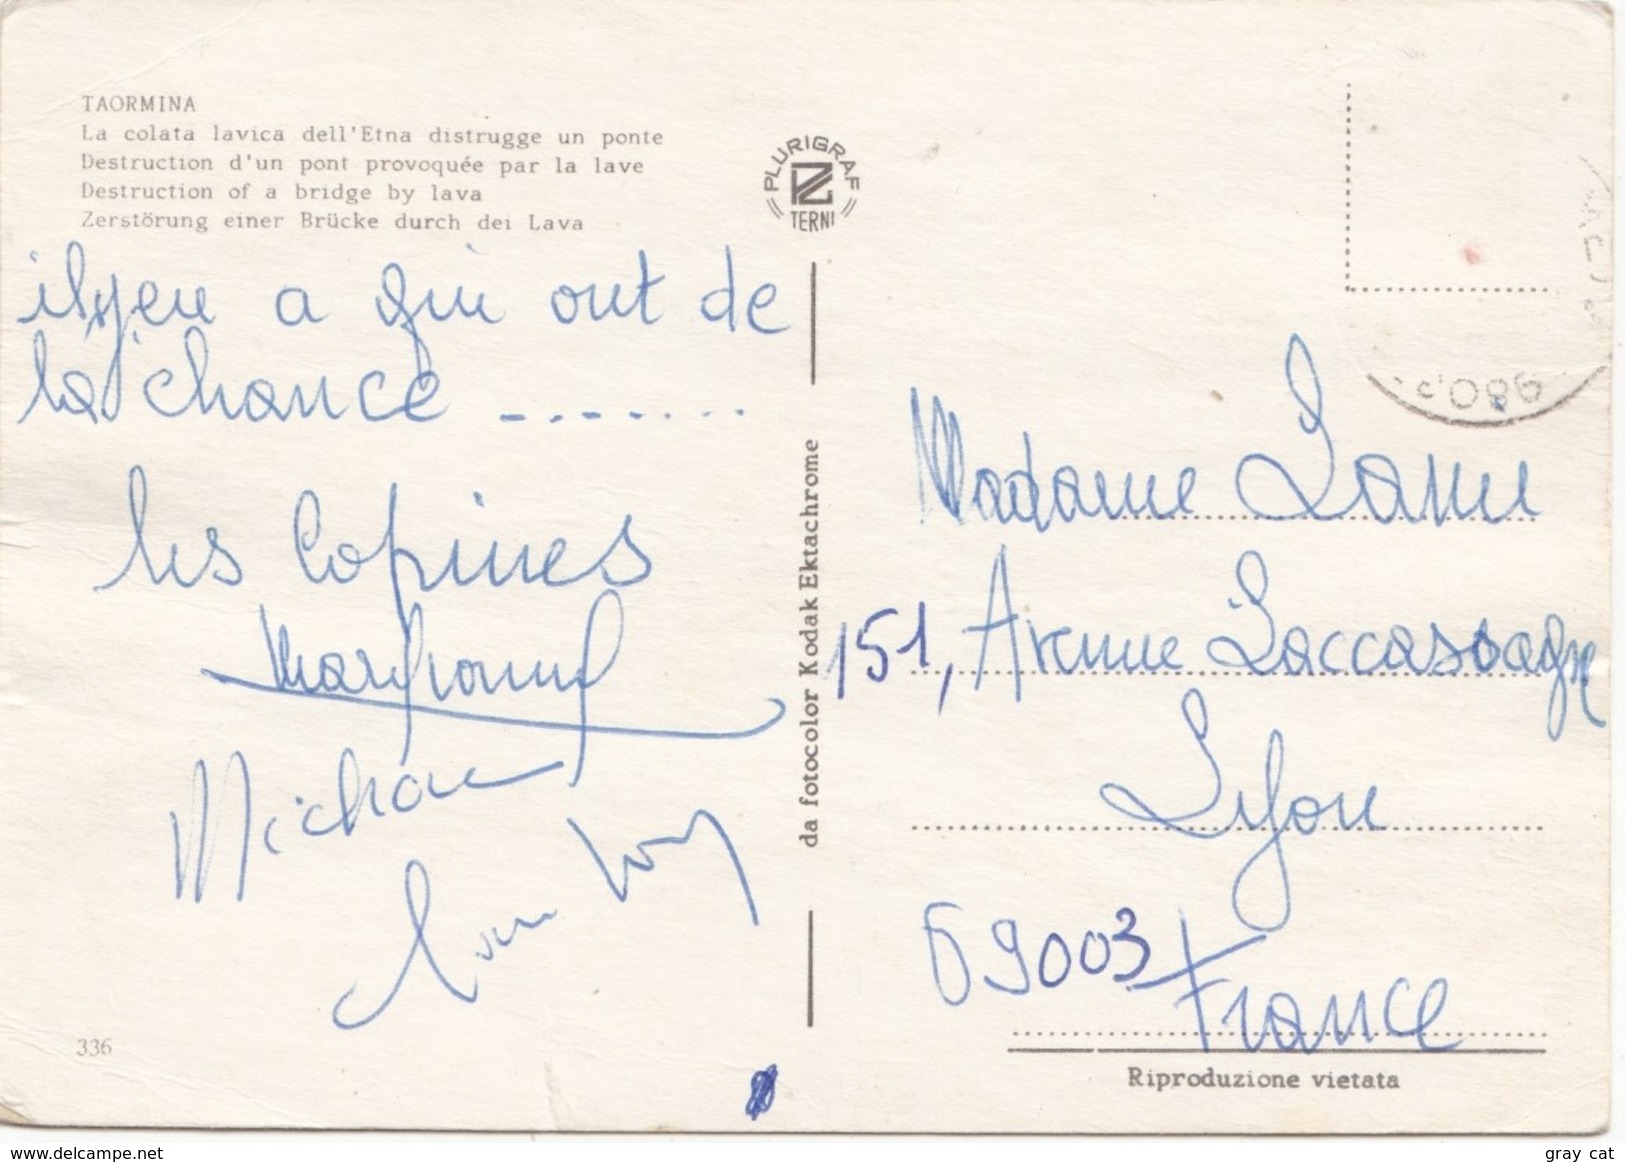 TAORMINA
La colata lavica dell'Etna distrugge un ponte
Destruction d'un pont provoquée par la lave
Destruction of a bridge by lava
Zerstörung einer Brücke durch dei Lava
ilyen a qui ont de
la chance .......
les Copines
336
PLURIGRAF
TERNI
da fotocolor Kodak Ektachrome
Madame
151, Avenue Laccassagne
Lyon
69003 France
Riproduzione vietata
delcampe.net
gray cat